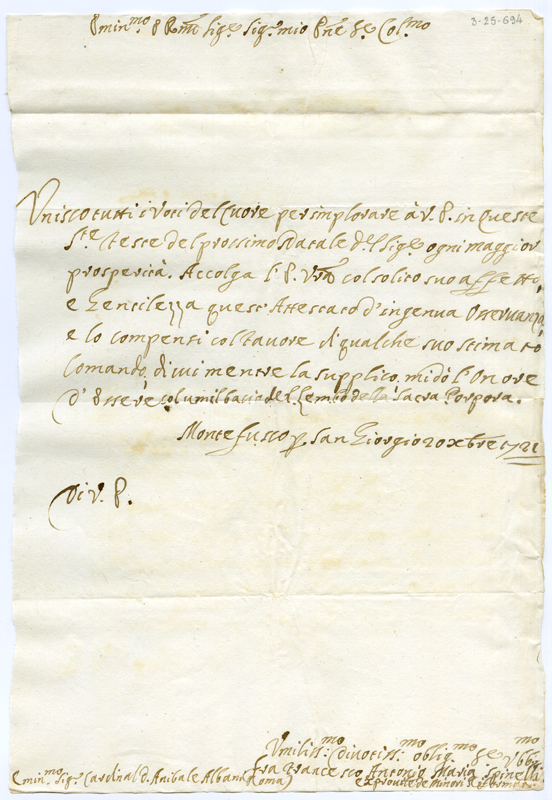 3-25-694
Emin.mo e R.mo Sig.e Sig.e mio P.ne e Col.mo
Unisco tutti i voti del Cuore per implorare à V. E. in queste
S.te Feste del prossimo Natale d.l Sig.e ogni maggior
prosperità. Accolga l'E. Vra col solito suo affetto,
e Gentilezza quest'Attestato d'ingenua Osservanza,
e lo compenti col favore di qualche suo stimato
Comando, di cui mentre la supplico, mi dò l'Onore
d'Essere col umil bacio del Lembo della Sacra Porpora.
Montefusco p. San Giorgio 20 Xbre 1721
Di V. E.
Umiliss.mo Divotiss.mo oblig.mo Se.
Fra Francesco Antonio Maria Spinelli
Emin.mo Sig.e Cardinal d. Anibale Albani (Roma)
exprovile de Minori Reformati